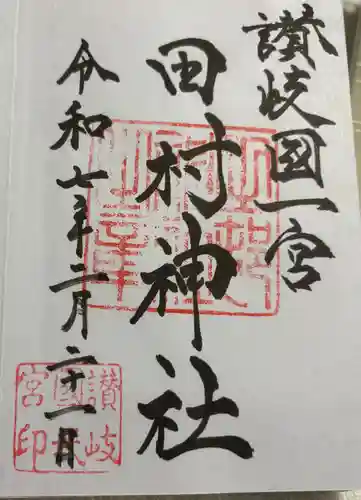 讃岐國一宮
田村神社
令和七年二月二十一日
讃岐
國一
宮印